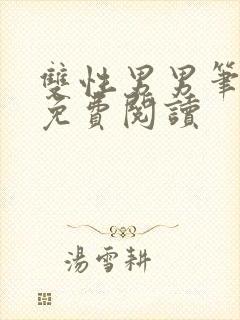 雙性男男筆
免費閱讀
湯雪耕